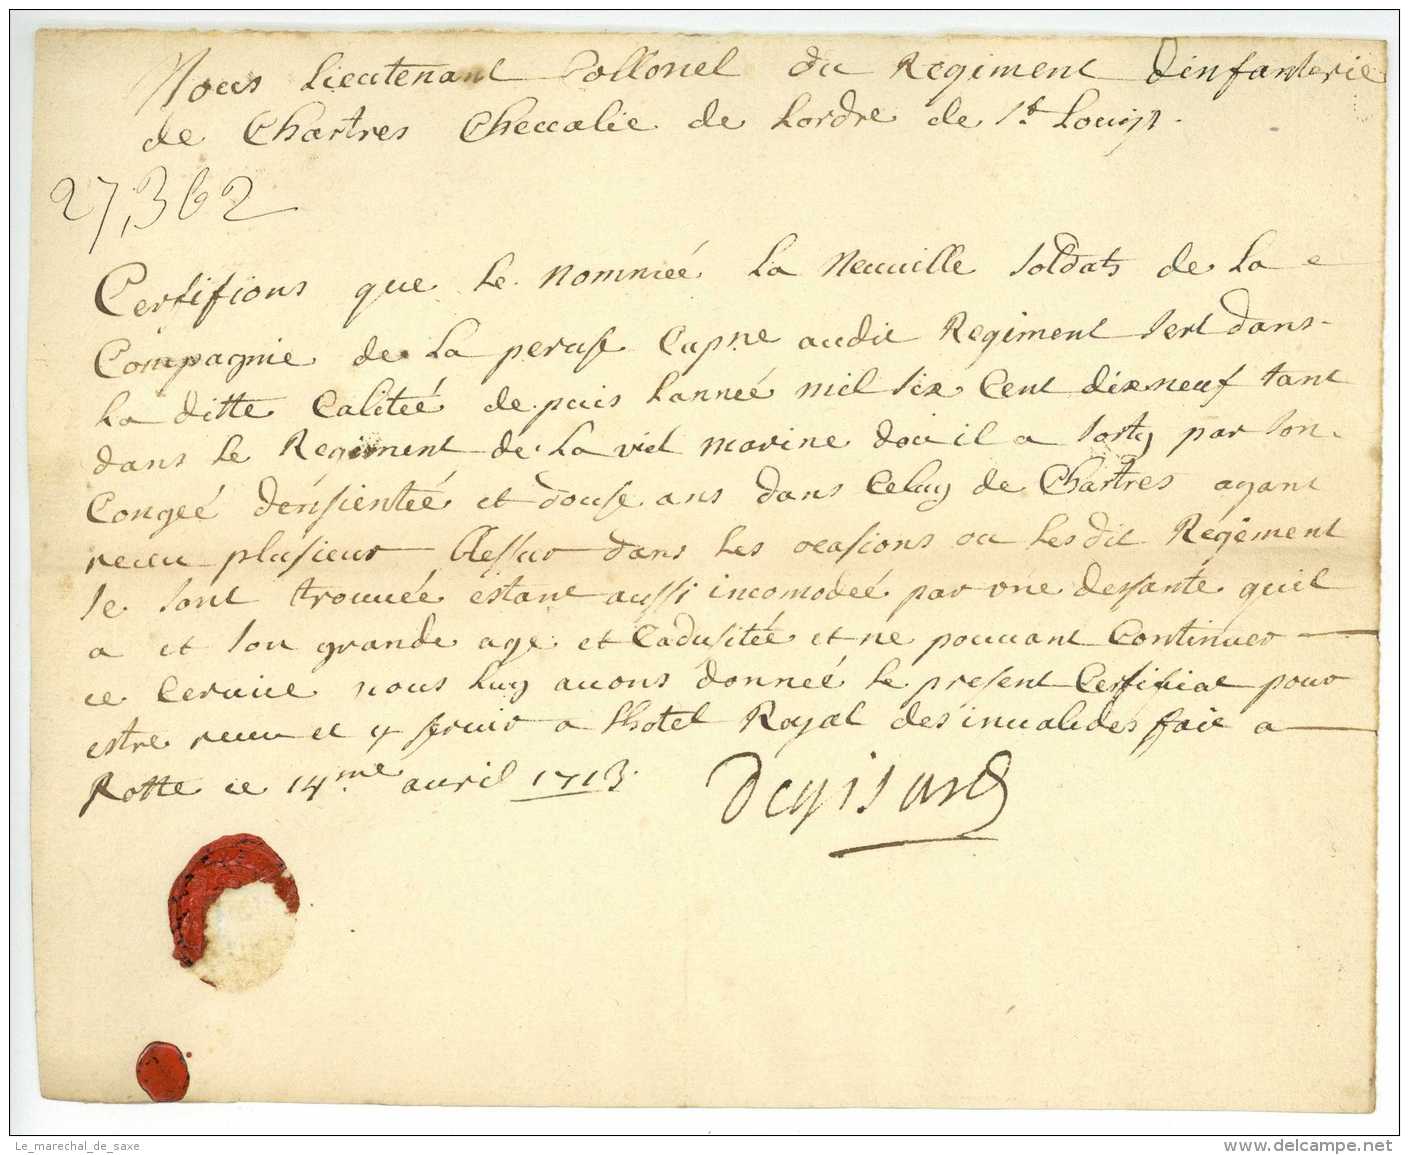 Nous Lieutenant Collonel du Regiment dinfanterie
de Chartres Chevalie de Lordre de St Louis
27,362
Certifions que le nommeé La Neuville soldats de la
Compagnie de la peruse Capne audit Regiment sert dans
la ditte Caliteé depuis Lanneé mil six Cent dixneuf tant
dans le Regiment de la viel marine dou il a sorty par son
Congeé et douse ans dans Celuy de Chartres ayant
receu plusieur Blessur dans les ocasions ou lesdit Regiment
se sont trouveé estant aussi incomodeé par une dessante quil
a et son grande age et Cadusiteé et ne pouvant Continuer
ce Cervice nous luy avons donneé le present Certificat pour
estre receu et y servir a lhotel Royal des invalides fait a
Rotte ce 14me avril 1713
Le_marechal_de_saxe
www.delcampe.net